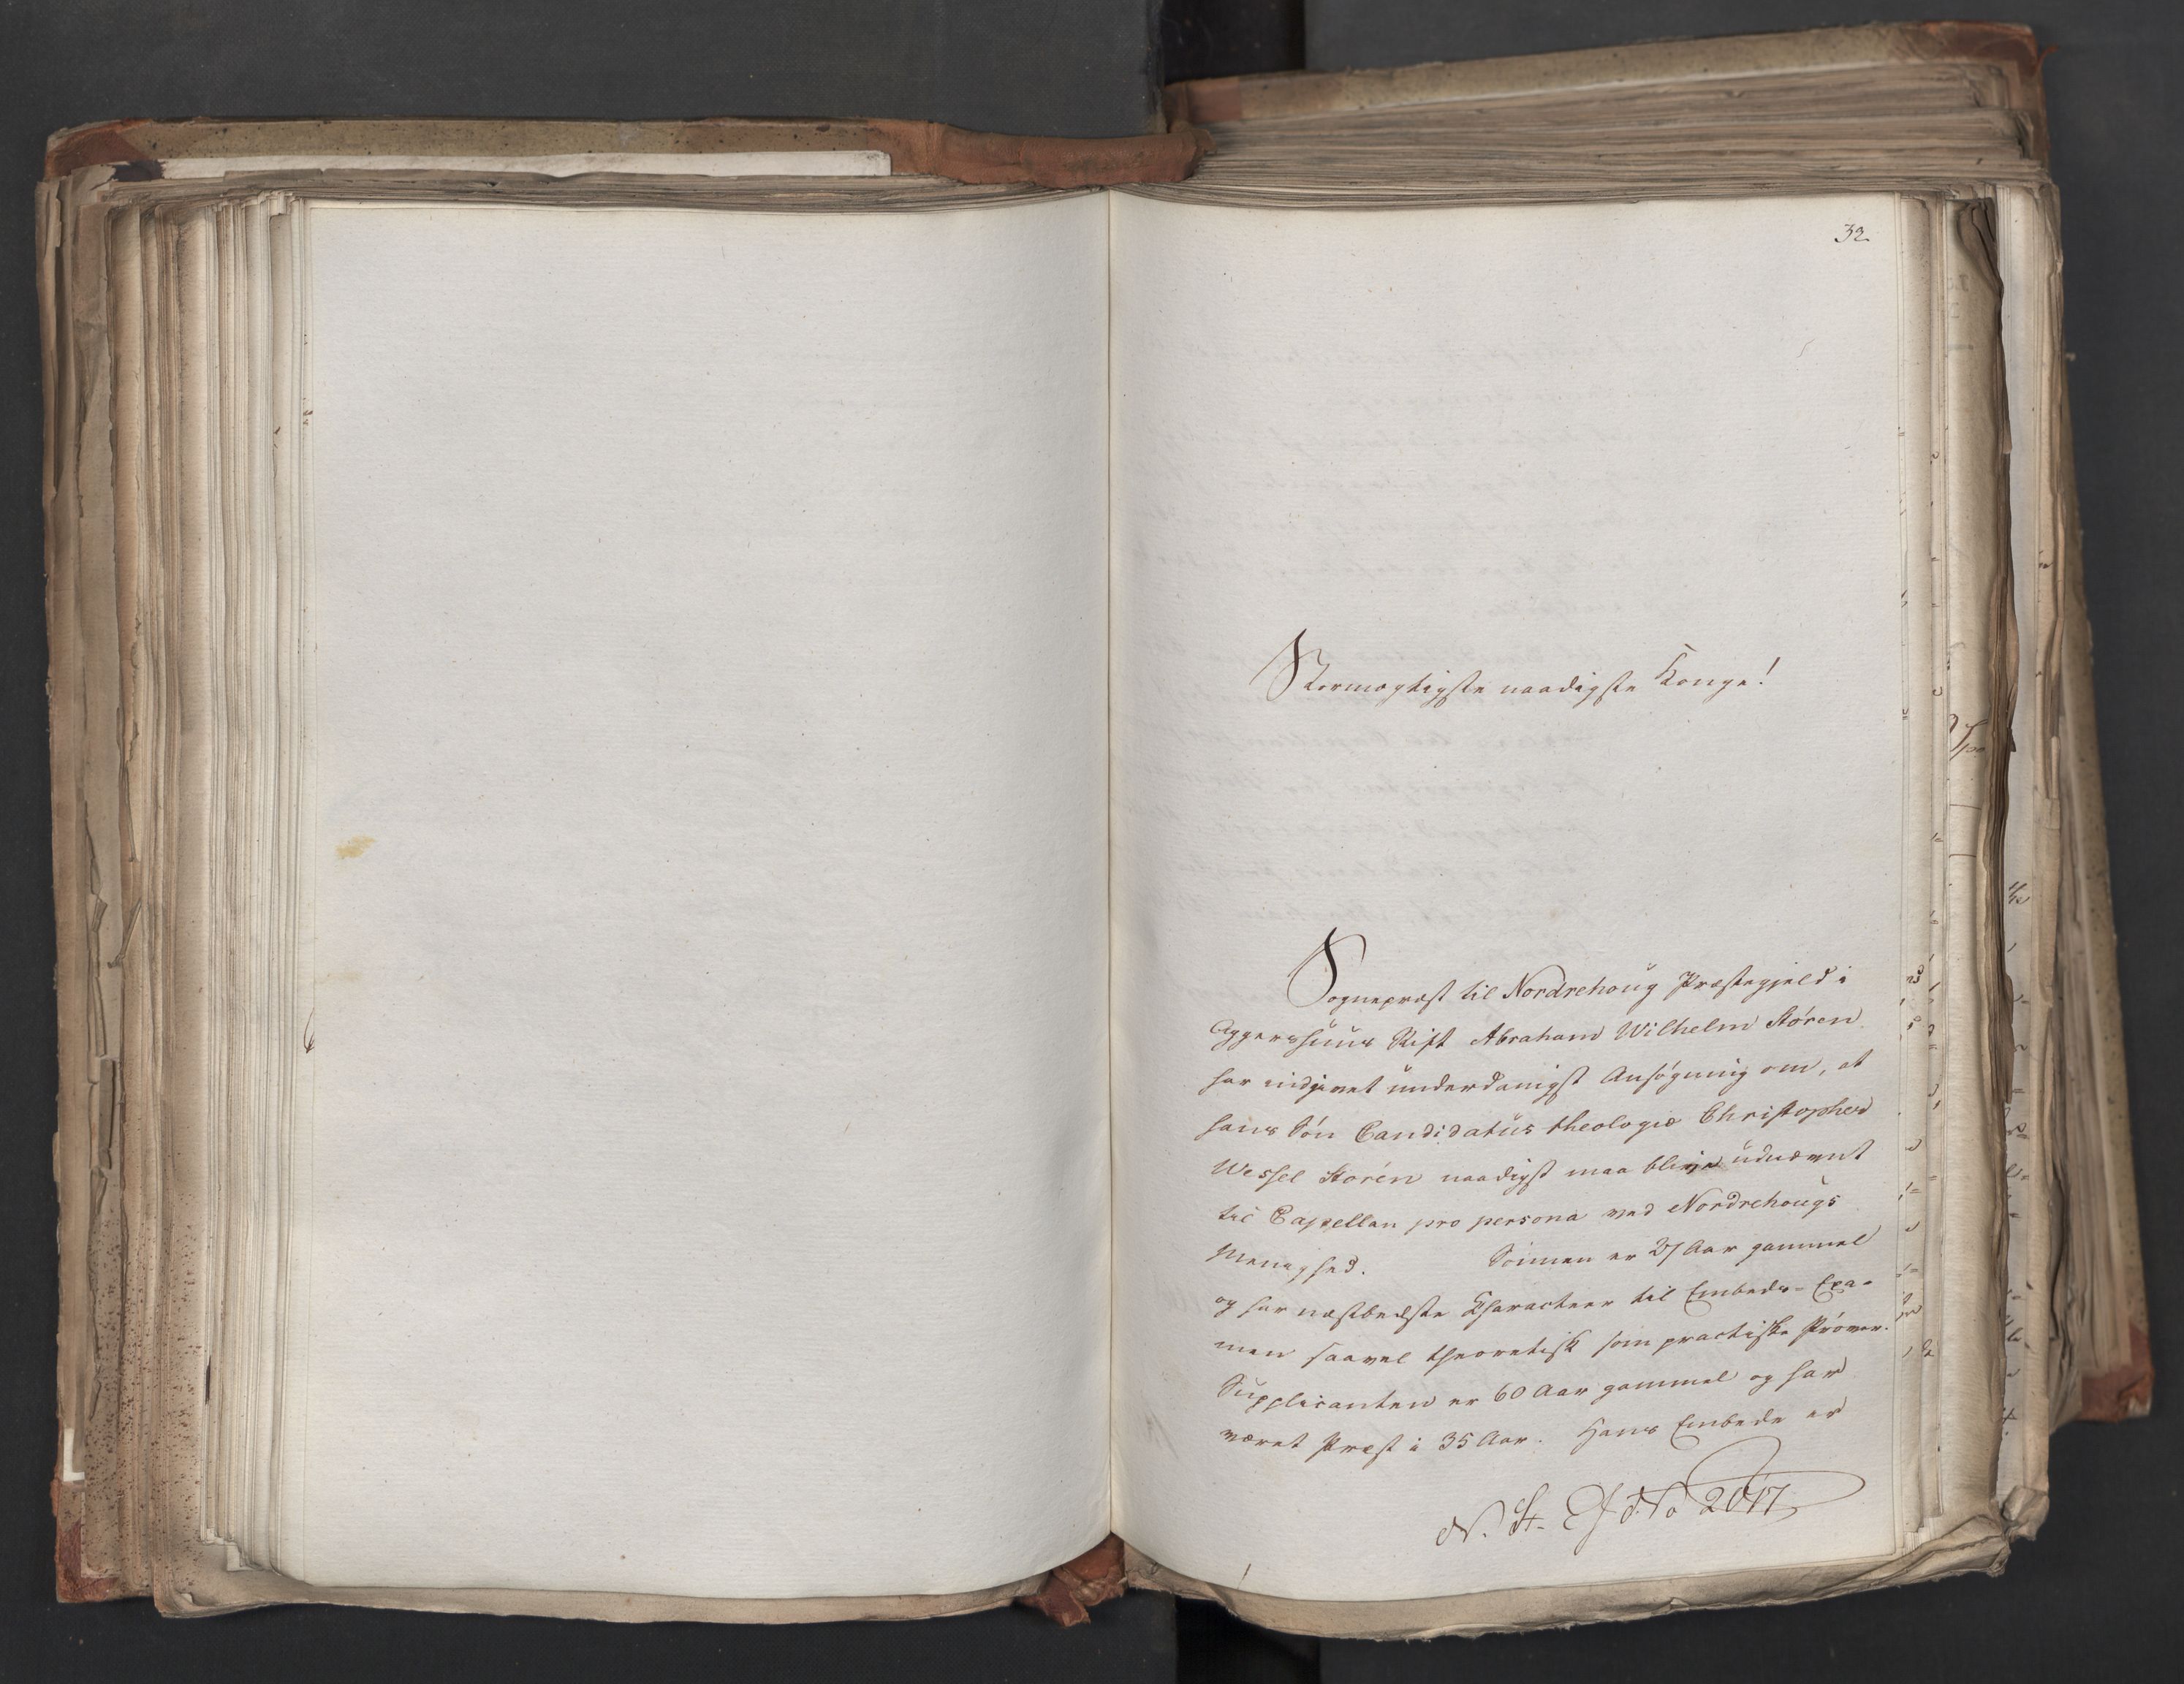 32
Stormægtigste naadigste Konge!
Sognepræst til Nordrehoug Præstegjeld i
Aggershuus Stift Abraham Wilhelm Støren
har indgivet underdanigst Ansøgning om, at
hans Søn Candidatus theologiæ Christopher
Wessel Støren naadigst maa blive udnævnt
til Capellan pro persona ved Nordrehougs
Menighed. Sönnen er 27 Aar gammel
og har næstbedste Characteer til Embeds-Exa-
men saavel theoretisk som practiske Prøver.
Supplicanten er 60 Aar gammel og har
været Præst i 35 Aar. Hans Embede er
2017